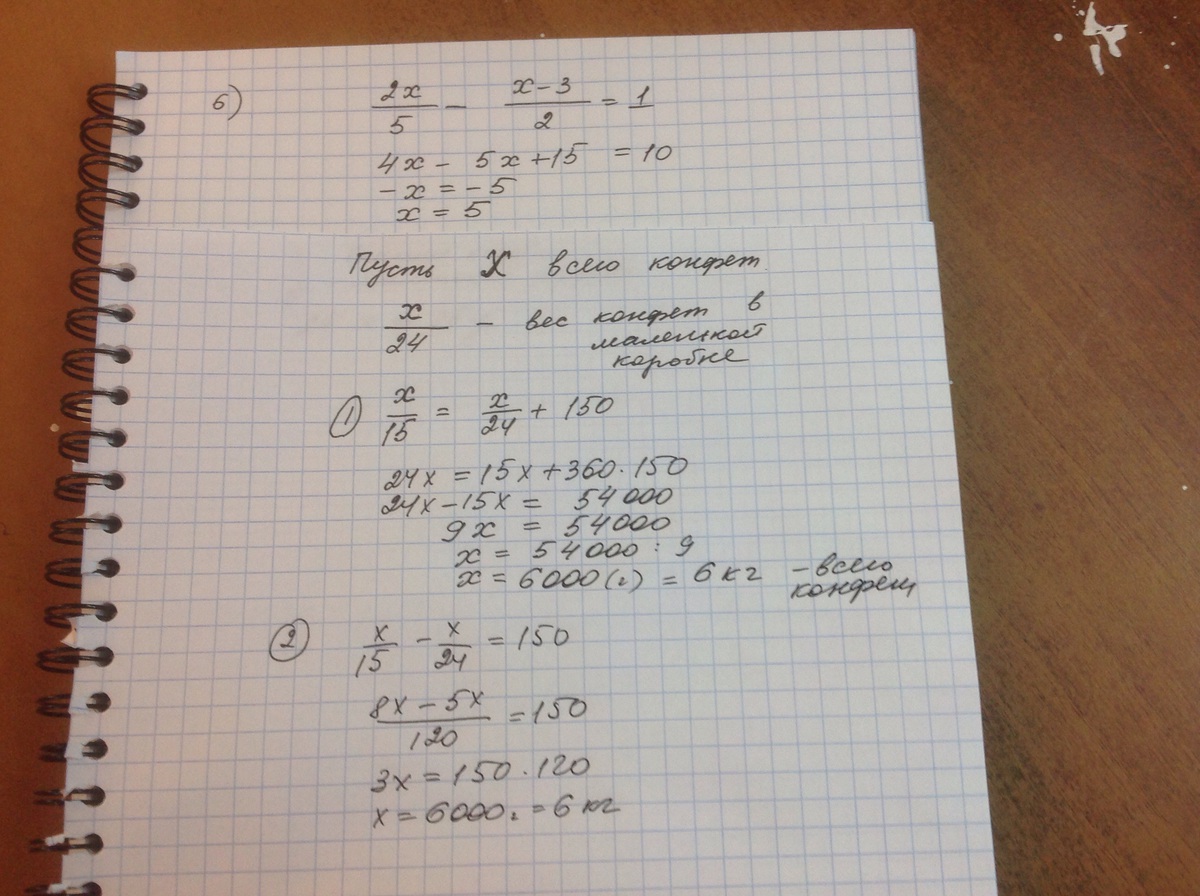 б) 2x/5 - x-3/2 = 1
4x - 5x+15 = 10
-x = -5
x = 5
Пусть X всего конфет.
x/24 - вес конфет в
маленькой
коробке
① x/15 = x/24 + 150
24x = 15x + 360 · 150
24x - 15x = 54000
9x = 54000
x = 54000 : 9
x = 6000 (г) = 6 кг - всего
конфет
② x/15 - x/24 = 150
8x - 5x/120 = 150
3x = 150 · 120
x = 6000г = 6 кг